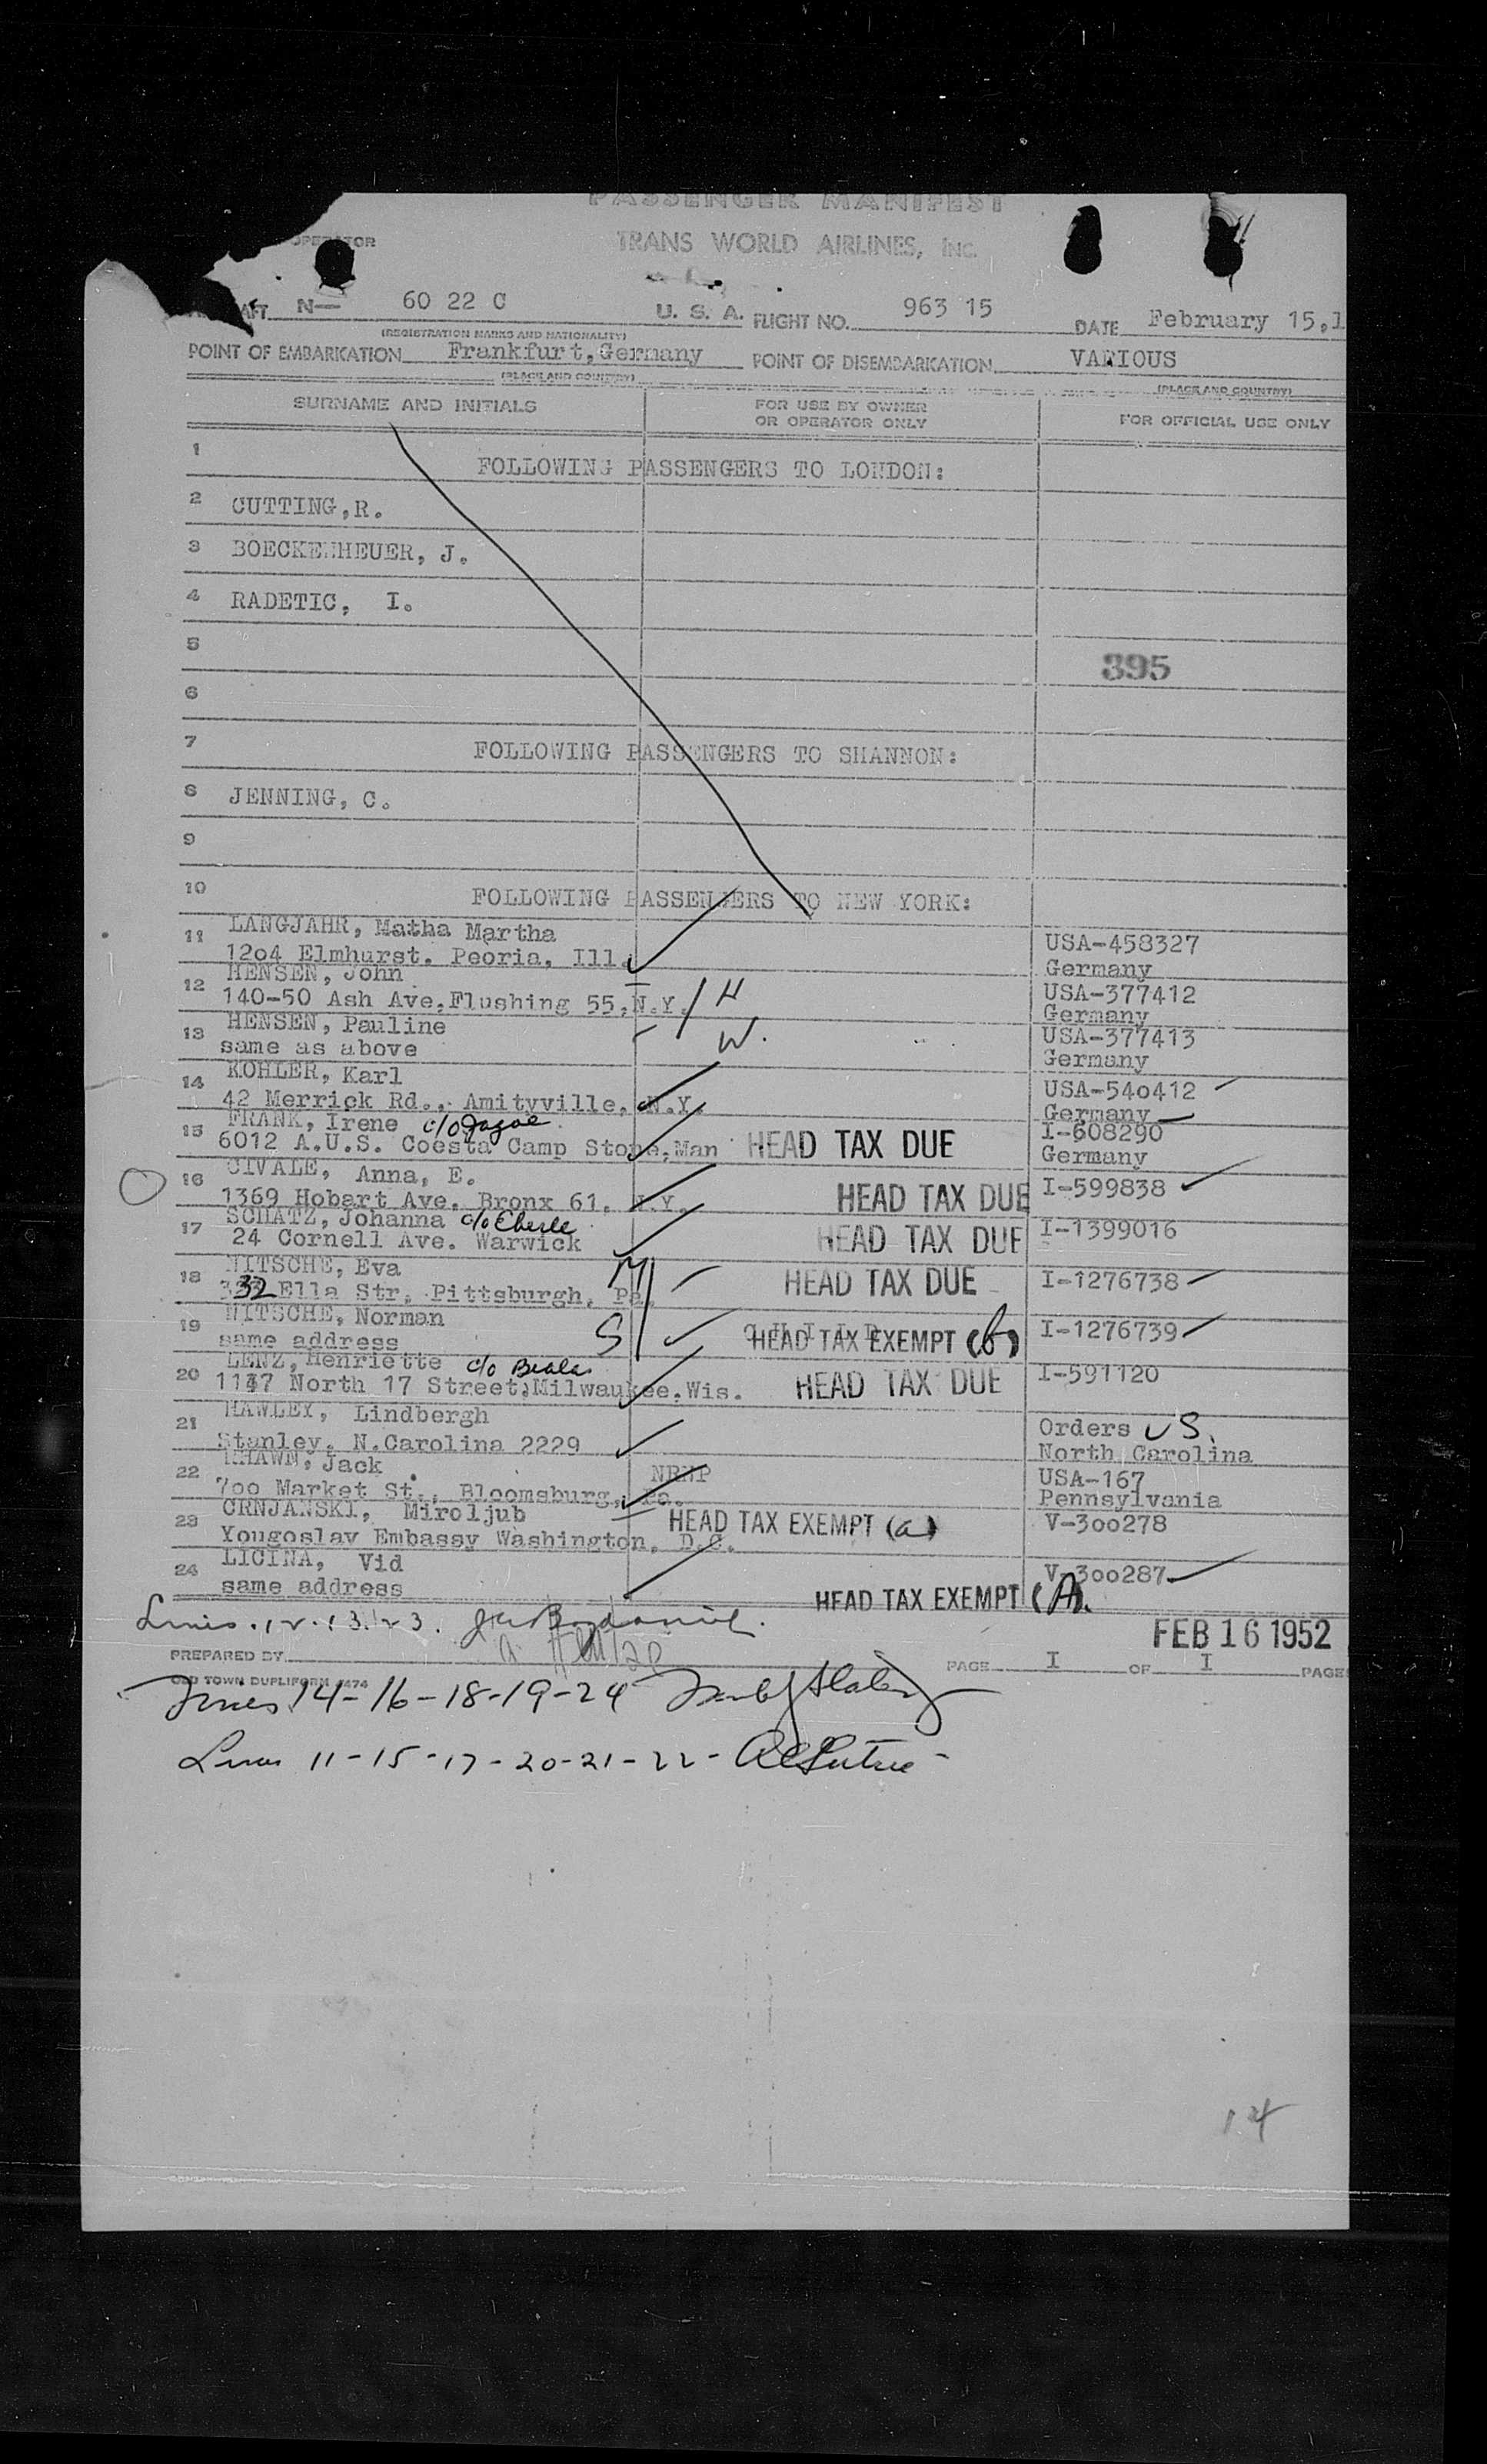 PASSENGER MANIFEST
OPERATOR
TRANS WORLD AIRLINES, INC.
AFT N— 60 22 C U. S. A. FLIGHT NO. 963 15 DATE February 15,1
(REGISTRATION MARKS AND NATIONALITY)
POINT OF EMBARKATION Frankfurt,Germany POINT OF DISEMBARKATION VARIOUS
(PLACE AND COUNTRY) (PLACE AND COUNTRY)
SURNAME AND INITIALS FOR USE BY OWNER OR OPERATOR ONLY FOR OFFICIAL USE ONLY
1 FOLLOWING PASSENGERS TO LONDON:
2 CUTTING,R.
3 BOECKENHEUER, J.
4 RADETIC, I.
5 395
6
7 FOLLOWING PASSENGERS TO SHANNON:
8 JENNING, C.
9
10 FOLLOWING PASSENGERS TO NEW YORK:
11 LANGJAHR, Matha Martha USA-458327
1204 Elmhurst. Peoria, Ill. Germany
12 HENSEN, John H USA-377412
140-50 Ash Ave,Flushing 55,N.Y. Germany
13 HENSEN, Pauline W. USA-377413
same as above Germany
14 KOHLER, Karl USA-540412
42 Merrick Rd., Amityville, N.Y. Germany
15 FRANK, Irene c/o I-608290
6012 A.U.S. Coesta Camp Stone,Man HEAD TAX DUE Germany
16 CIVALE, Anna, E. I-599838
1369 Hobart Ave. Bronx 61, N.Y. HEAD TAX DUE
17 SCHATZ, Johanna c/o Eberle I-1399016
24 Cornell Ave. Warwick HEAD TAX DUE
18 NITSCHE, Eva M HEAD TAX DUE I-1276738
332 Ella Str, Pittsburgh, Pa.
19 NITSCHE, Norman CHILD I-1276739
same address S HEAD TAX EXEMPT (b)
20 LENZ, Henriette c/o Beale I-591120
1147 North 17 Street,Milwaukee,Wis. HEAD TAX DUE
21 HAWLEY, Lindbergh Orders US.
Stanley, N.Carolina 2229 North Carolina
22 SHAWN, Jack USA-167
700 Market St., Bloomsburg, Pa. Pennsylvania
23 CRNJANSKI, Miroljub HEAD TAX EXEMPT (a) V-300278
Yougoslav Embassy Washington, D.C.
24 LICINA, Vid V-300287
same address HEAD TAX EXEMPT (A).
Lines. 12.13.23.
FEB 16 1952
PREPARED BY PAGE I OF I PAGE
OLD TOWN DUPLIFORM 7474
Lines 14-16-18-19-24
Lines 11-15-17-20-21-22-
14